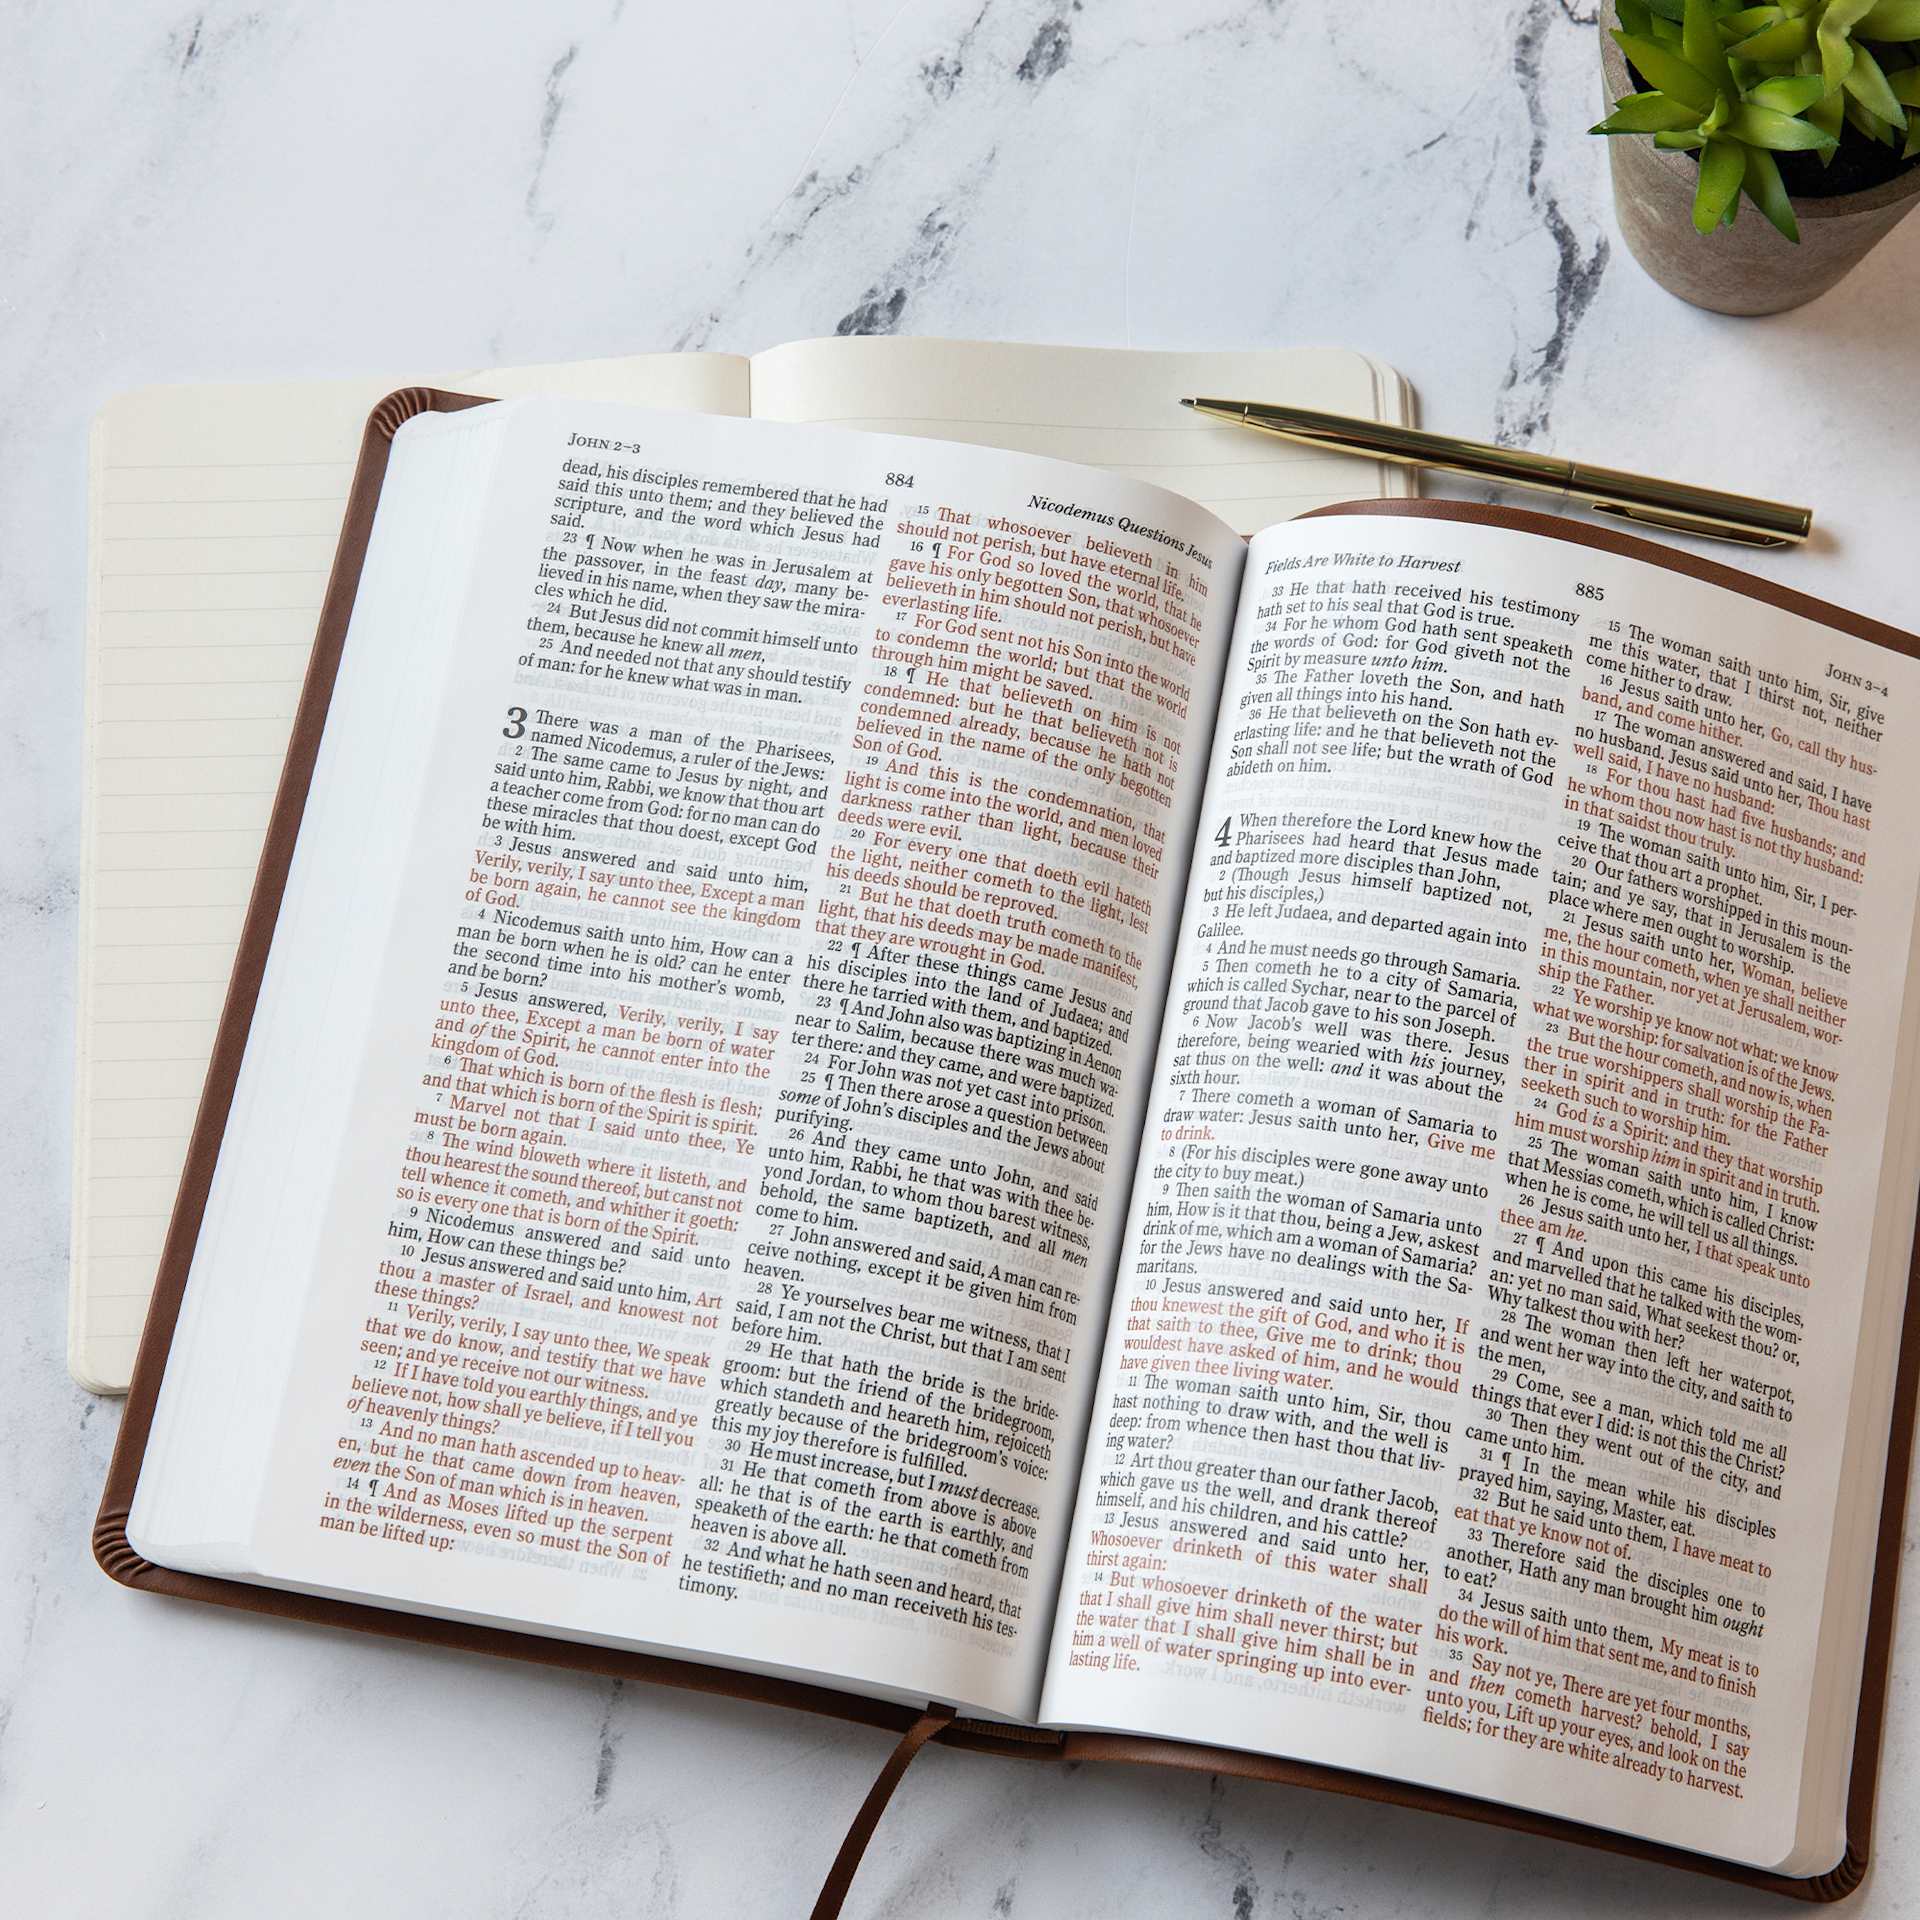 JOHN 2–3
884
Nicodemus Questions Jesus
dead, his disciples remembered that he had
said this unto them; and they believed the
scripture, and the word which Jesus had
said.
23 ¶ Now when he was in Jerusalem at
the passover, in the feast day, many be-
lieved in his name, when they saw the mira-
cles which he did.
24 But Jesus did not commit himself unto
them, because he knew all men,
25 And needed not that any should testify
of man: for he knew what was in man.
3 There was a man of the Pharisees,
named Nicodemus, a ruler of the Jews:
2 The same came to Jesus by night, and
said unto him, Rabbi, we know that thou art
a teacher come from God: for no man can do
these miracles that thou doest, except God
be with him.
3 Jesus answered and said unto him,
Verily, verily, I say unto thee, Except a man
be born again, he cannot see the kingdom
of God.
4 Nicodemus saith unto him, How can a
man be born when he is old? can he enter
the second time into his mother's womb,
and be born?
5 Jesus answered, Verily, verily, I say
unto thee, Except a man be born of water
and of the Spirit, he cannot enter into the
kingdom of God.
6 That which is born of the flesh is flesh;
and that which is born of the Spirit is spirit.
7 Marvel not that I said unto thee, Ye
must be born again.
8 The wind bloweth where it listeth, and
thou hearest the sound thereof, but canst not
tell whence it cometh, and whither it goeth:
so is every one that is born of the Spirit.
9 Nicodemus answered and said unto
him, How can these things be?
10 Jesus answered and said unto him, Art
thou a master of Israel, and knowest not
these things?
11 Verily, verily, I say unto thee, We speak
that we do know, and testify that we have
seen; and ye receive not our witness.
12 If I have told you earthly things, and ye
believe not, how shall ye believe, if I tell you
of heavenly things?
13 And no man hath ascended up to heav-
en, but he that came down from heaven,
even the Son of man which is in heaven.
14 ¶ And as Moses lifted up the serpent
in the wilderness, even so must the Son of
man be lifted up:
15 That whosoever believeth in him
should not perish, but have eternal life.
16 ¶ For God so loved the world, that he
gave his only begotten Son, that whosoever
believeth in him should not perish, but have
everlasting life.
17 For God sent not his Son into the world
to condemn the world; but that the world
through him might be saved.
18 ¶ He that believeth on him is not
condemned: but he that believeth not is
condemned already, because he hath not
believed in the name of the only begotten
Son of God.
19 And this is the condemnation, that
light is come into the world, and men loved
darkness rather than light, because their
deeds were evil.
20 For every one that doeth evil hateth
the light, neither cometh to the light, lest
his deeds should be reproved.
21 But he that doeth truth cometh to the
light, that his deeds may be made manifest,
that they are wrought in God.
22 ¶ After these things came Jesus and
his disciples into the land of Judaea; and
there he tarried with them, and baptized.
23 ¶ And John also was baptizing in Aenon
near to Salim, because there was much wa-
ter there: and they came, and were baptized.
24 For John was not yet cast into prison.
25 ¶ Then there arose a question between
some of John's disciples and the Jews about
purifying.
26 And they came unto John, and said
unto him, Rabbi, he that was with thee be-
yond Jordan, to whom thou barest witness,
behold, the same baptizeth, and all men
come to him.
27 John answered and said, A man can re-
ceive nothing, except it be given him from
heaven.
28 Ye yourselves bear me witness, that I
said, I am not the Christ, but that I am sent
before him.
29 He that hath the bride is the bride-
groom: but the friend of the bridegroom,
which standeth and heareth him, rejoiceth
greatly because of the bridegroom's voice:
this my joy therefore is fulfilled.
30 He must increase, but I must decrease.
31 He that cometh from above is above
all: he that is of the earth is earthly, and
speaketh of the earth: he that cometh from
heaven is above all.
32 And what he hath seen and heard, that
he testifieth; and no man receiveth his tes-
timony.
Fields Are White to Harvest
885
JOHN 3–4
33 He that hath received his testimony
hath set to his seal that God is true.
34 For he whom God hath sent speaketh
the words of God: for God giveth not the
Spirit by measure unto him.
35 The Father loveth the Son, and hath
given all things into his hand.
36 He that believeth on the Son hath ev-
erlasting life: and he that believeth not the
Son shall not see life; but the wrath of God
abideth on him.
4 When therefore the Lord knew how the
Pharisees had heard that Jesus made
and baptized more disciples than John,
2 (Though Jesus himself baptized not,
but his disciples,)
3 He left Judaea, and departed again into
Galilee.
4 And he must needs go through Samaria.
5 Then cometh he to a city of Samaria,
which is called Sychar, near to the parcel of
ground that Jacob gave to his son Joseph.
6 Now Jacob's well was there. Jesus
therefore, being wearied with his journey,
sat thus on the well: and it was about the
sixth hour.
7 There cometh a woman of Samaria to
draw water: Jesus saith unto her, Give me
to drink.
8 (For his disciples were gone away unto
the city to buy meat.)
9 Then saith the woman of Samaria unto
him, How is it that thou, being a Jew, askest
drink of me, which am a woman of Samaria?
for the Jews have no dealings with the Sa-
maritans.
10 Jesus answered and said unto her, If
thou knewest the gift of God, and who it is
that saith to thee, Give me to drink; thou
wouldest have asked of him, and he would
have given thee living water.
11 The woman saith unto him, Sir, thou
hast nothing to draw with, and the well is
deep: from whence then hast thou that liv-
ing water?
12 Art thou greater than our father Jacob,
which gave us the well, and drank thereof
himself, and his children, and his cattle?
13 Jesus answered and said unto her,
Whosoever drinketh of this water shall
thirst again:
14 But whosoever drinketh of the water
that I shall give him shall never thirst; but
the water that I shall give him shall be in
him a well of water springing up into ever-
lasting life.
15 The woman saith unto him, Sir, give
me this water, that I thirst not, neither
come hither to draw.
16 Jesus saith unto her, Go, call thy hus-
band, and come hither.
17 The woman answered and said, I have
no husband. Jesus said unto her, Thou hast
well said, I have no husband:
18 For thou hast had five husbands; and
he whom thou now hast is not thy husband:
in that saidst thou truly.
19 The woman saith unto him, Sir, I per-
ceive that thou art a prophet.
20 Our fathers worshipped in this moun-
tain; and ye say, that in Jerusalem is the
place where men ought to worship.
21 Jesus saith unto her, Woman, believe
me, the hour cometh, when ye shall neither
in this mountain, nor yet at Jerusalem, wor-
ship the Father.
22 Ye worship ye know not what: we know
what we worship: for salvation is of the Jews.
23 But the hour cometh, and now is, when
the true worshippers shall worship the Fa-
ther in spirit and in truth: for the Father
seeketh such to worship him.
24 God is a Spirit: and they that worship
him must worship him in spirit and in truth.
25 The woman saith unto him, I know
that Messias cometh, which is called Christ:
when he is come, he will tell us all things.
26 Jesus saith unto her, I that speak unto
thee am he.
27 ¶ And upon this came his disciples,
and marvelled that he talked with the wom-
an: yet no man said, What seekest thou? or,
Why talkest thou with her?
28 The woman then left her waterpot,
and went her way into the city, and saith to
the men,
29 Come, see a man, which told me all
things that ever I did: is not this the Christ?
30 Then they went out of the city, and
came unto him.
31 ¶ In the mean while his disciples
prayed him, saying, Master, eat.
32 But he said unto them, I have meat to
eat that ye know not of.
33 Therefore said the disciples one to
another, Hath any man brought him ought
to eat?
34 Jesus saith unto them, My meat is to
do the will of him that sent me, and to finish
his work.
35 Say not ye, There are yet four months,
and then cometh harvest? behold, I say
unto you, Lift up your eyes, and look on the
fields; for they are white already to harvest.